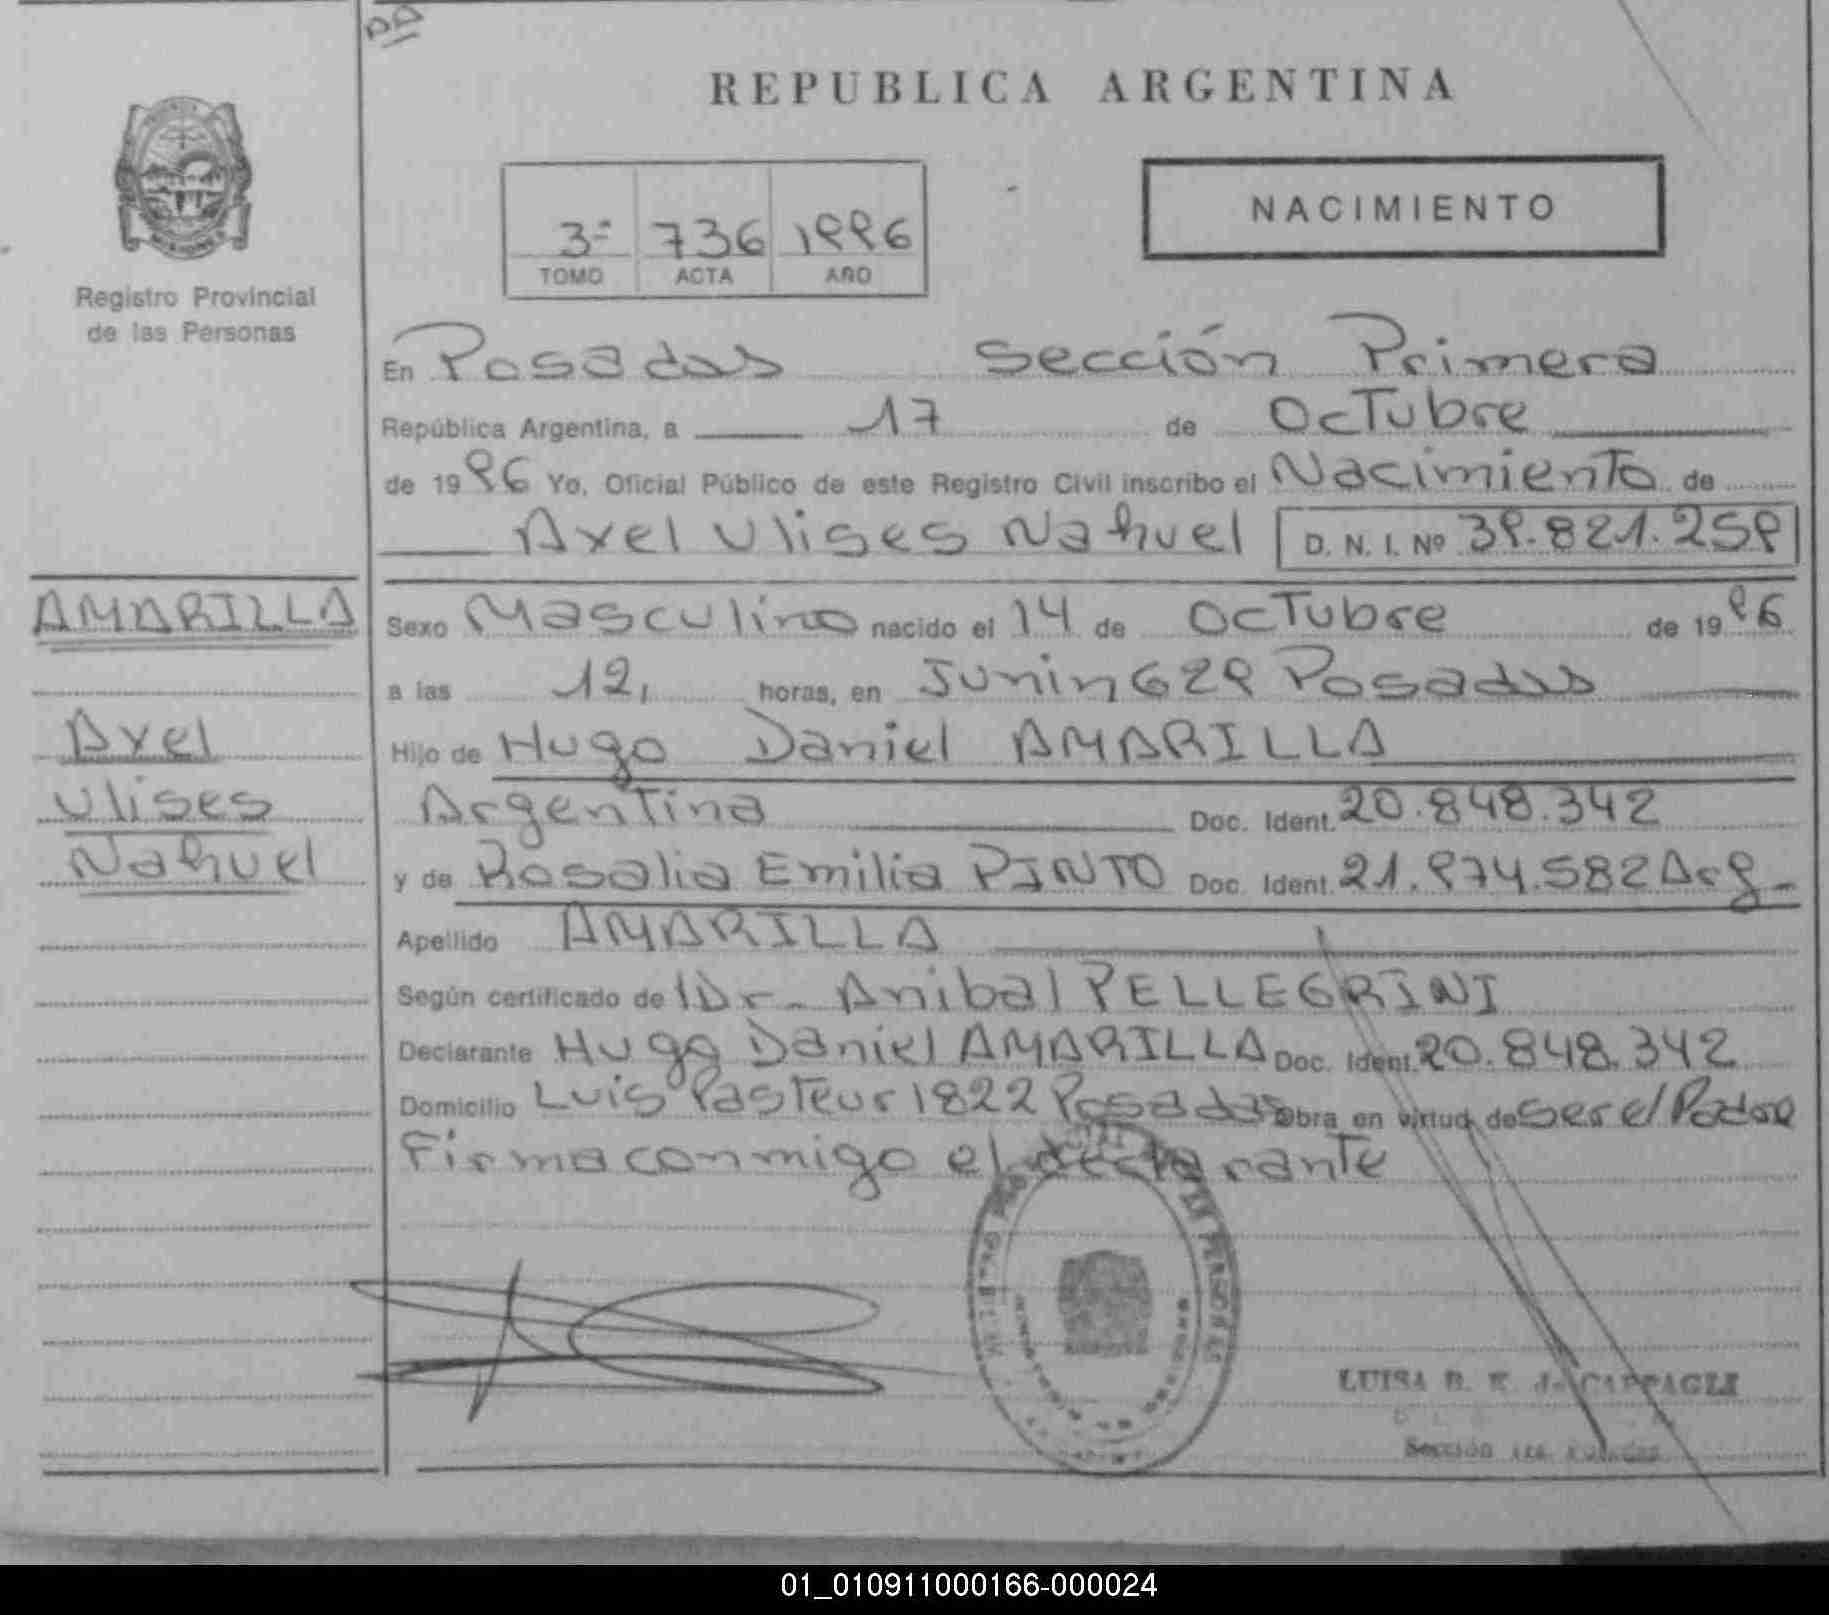 REPUBLICA ARGENTINA
NACIMIENTO
3ª 736 1996
TOMO ACTA AÑO
Registro Provincial
de las Personas
En Posadas Sección Primera
República Argentina, a 17 de Octubre
de 1996 Yo, Oficial Público de este Registro Civil inscribo el Nacimiento de
Axel Ulises Nahuel D. N. I. Nº 39.821.259
AMARILLA
Axel
Ulises
Nahuel
Sexo Masculino nacido el 14 de Octubre de 1996
a las 12, horas, en Junin 629 Posadas
Hijo de Hugo Daniel AMARILLA
Argentina Doc. Ident. 20.848.342
y de Rosalia Emilia PINTO Doc. Ident. 21.974.582 Arg
Apellido AMARILLA
Según certificado de Dr. Anibal PELLEGRINI
Declarante Hugo Daniel AMARILLA Doc. Ident. 20.848.342
Domicilio Luis Pasteur 1822 Posadas Obra en virtud de ser el Padre
Firma conmigo el declarante
LUISA
Sección
01_010911000166-000024